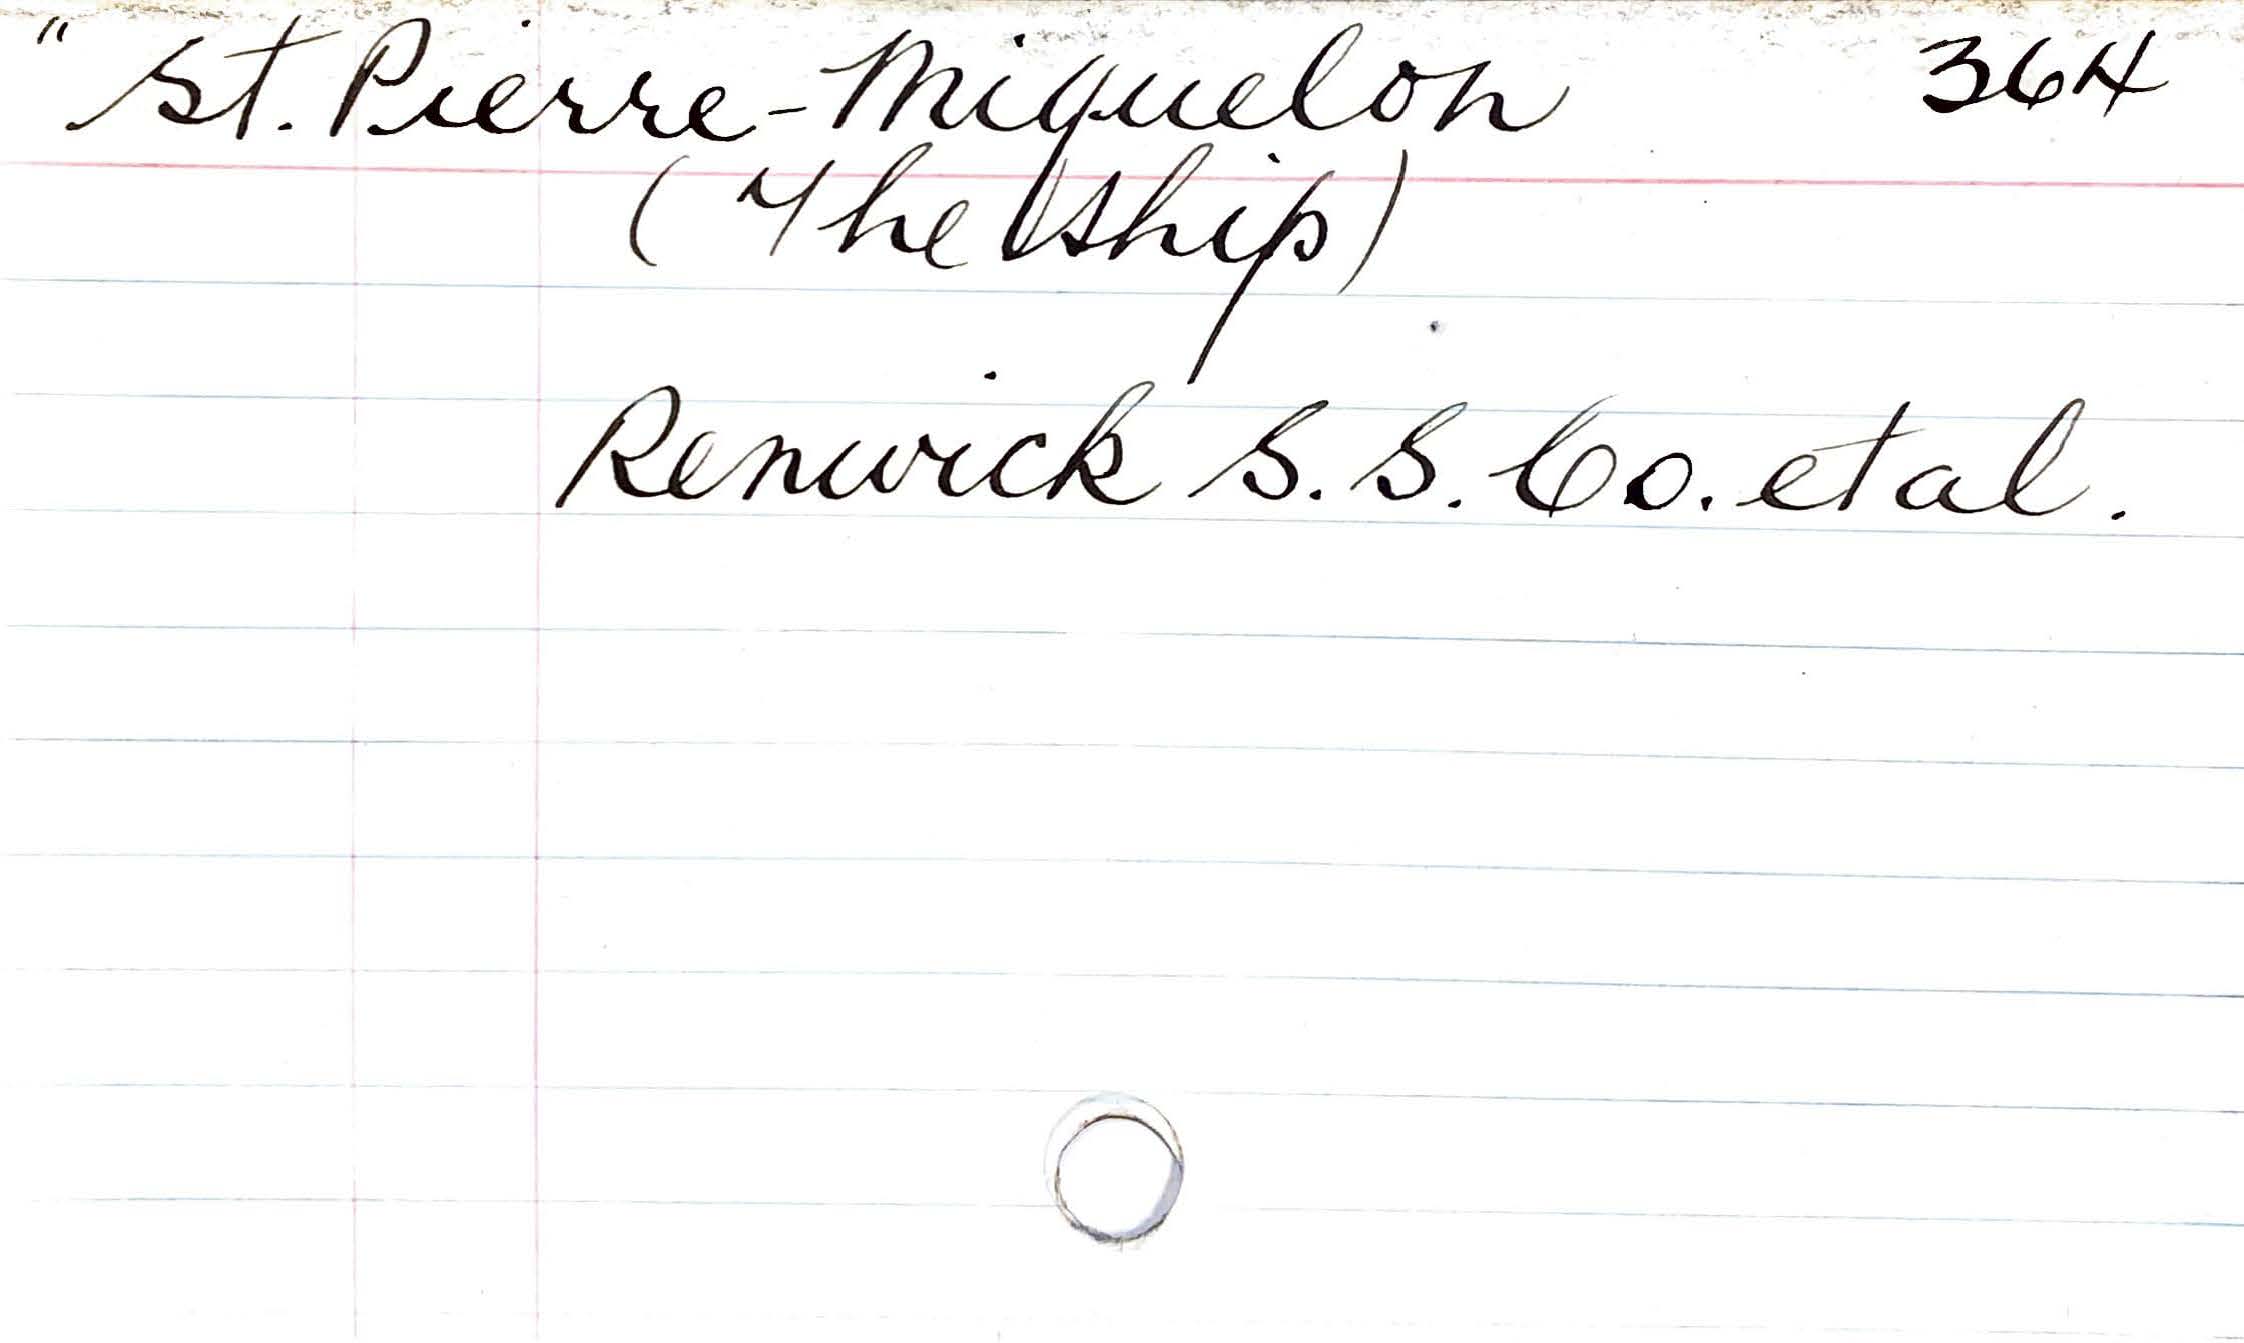 "St. Pierre-Miquelon 364
(The ship)
Renwick S. S. Co. et al.